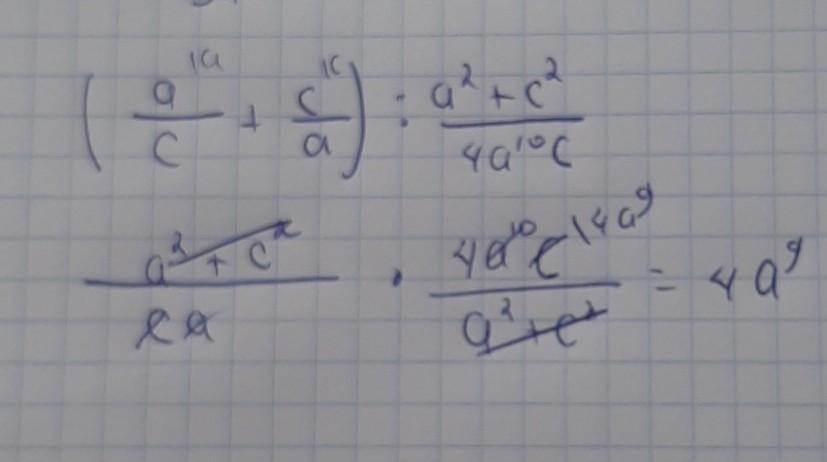 ( a/c \a + c/a \c ) : a² + c² / 4a¹⁰c
a² + c² / ca · 4a¹⁰c \4a⁹ / a² + c² = 4a⁹